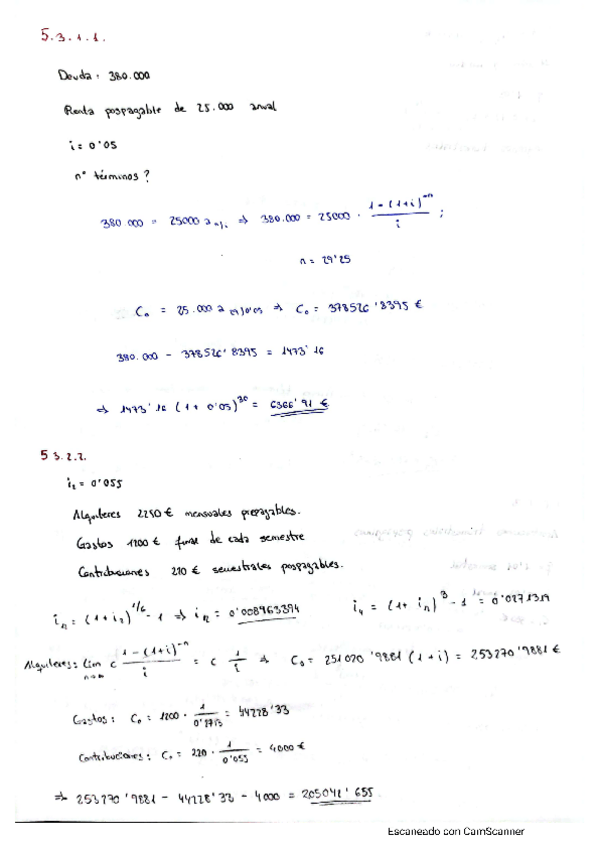 5.3.1.1.
Deuda: 380.000
Renta pospagable de 25.000 anual
i = 0'05
nº términos?
380 000 = 25000 a n⌉i ⇒ 380.000 = 25000 · 1 - (1+i)^-n / i ;
n = 29'25
C₀ = 25.000 a 29⌉0'05 ⇒ C₀ = 378526'8395 €
380.000 - 378526'8395 = 1473'16
⇒ 1473'16 (1 + 0'05)^30 = 6366'91 €
5 3.2.2.
i₂ = 0'055
Alquileres 2250 € mensuales prepagables.
Gastos 1200 € final de cada semestre
Contribuciones 220 € semestrales pospagables.
i₁₂ = (1+i₂)^1/6 - 1 ⇒ i₁₂ = 0'008963394
i₄ = (1+ i₁₂)^3 - 1 = 0'0271319
Alquileres: lim n→∞ c 1 - (1+i)^-n / i = c 1/i ⇒ C₀ = 251020'9881 (1+i) = 253270'9881 €
Gastos: C₀ = 1200 · 1/0'2713 = 44228'33
Contribuciones: C₀ = 220 · 1/0'055 = 4000 €
⇒ 253270'9881 - 44228'33 - 4000 = 205042'655
Escaneado con CamScanner